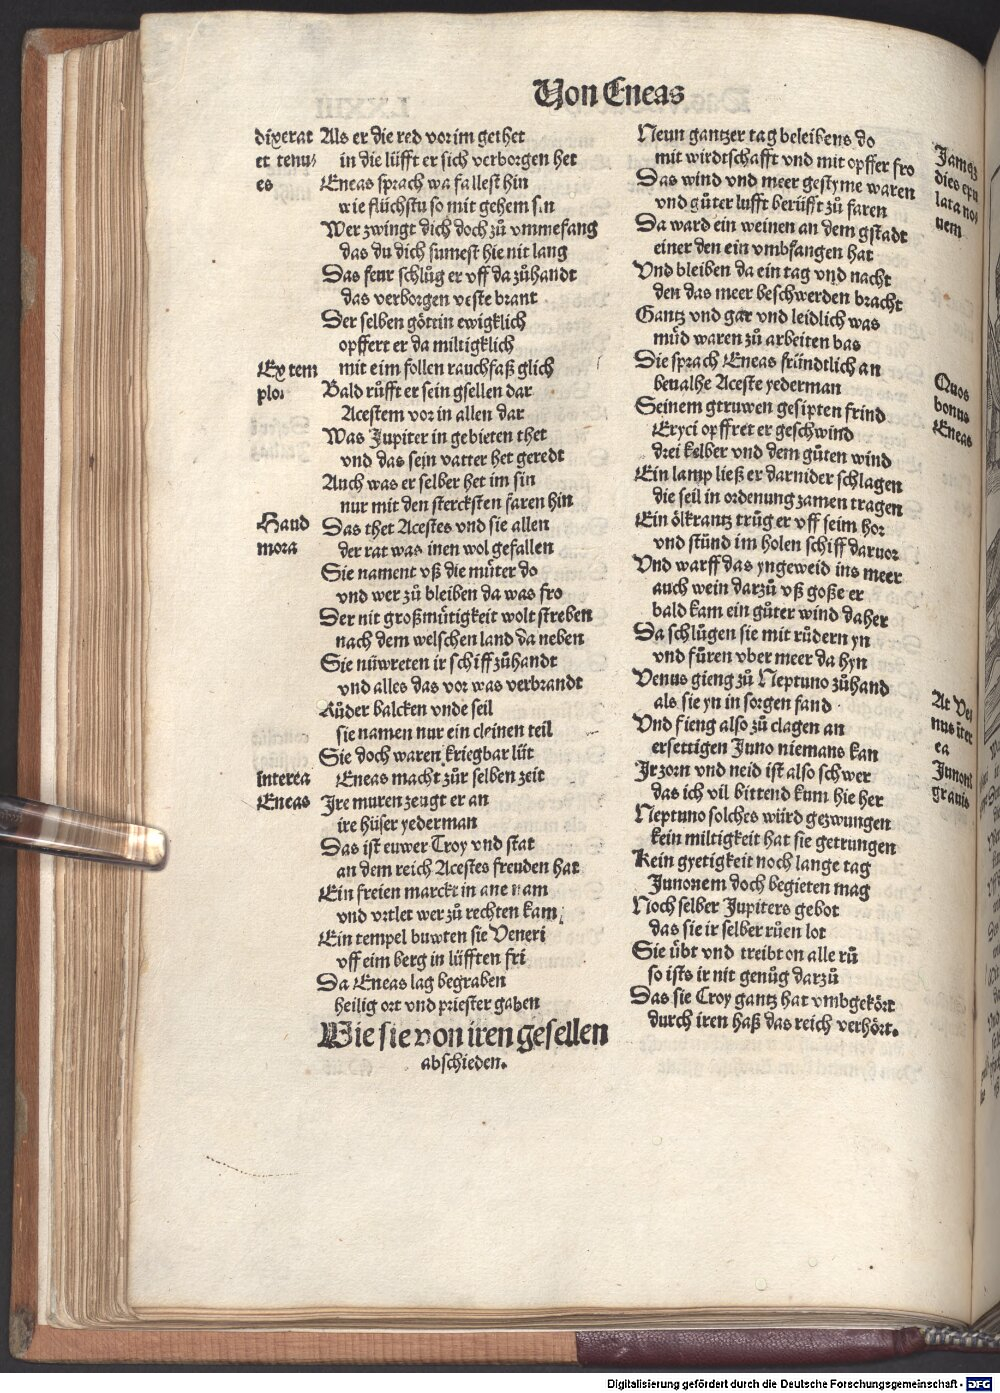 Von Eneas
dixerat
et tenu⸗
es
Als er die red vor im gethet
in die lüfft er sich verborgen het
Eneas sprach wa fallest hin
wie flüchstu so mit gehem sin
Wer zwingt dich doch zů vmmefang
das du dich sumest hie nit lang
Das feur schlůg er vff da zůhandt
das verborgen veste brant
Der selben göttin ewigklich
opffert er da miltigklich
Ex tem
plo⸗
mit eim follen rauchfaß glich
Bald rüfft er sein gsellen dar
Acestem vor in allen dar
Was Jupiter in gebieten thet
vnd das sein vatter het geredt
Auch was er selber het im sin
nur mit den stercksten faren hin
Haud
mora
Das thet Acestes vnd sie allen
der rat was inen wol gefallen
Sie nament vß die můter do
vnd wer zů bleiben da was fro
Der nit großmůtigkeit wolt streben
nach dem welschen land da neben
Sie nüwreten ir schiff zůhandt
vnd alles das vor was verbrandt
Růder balcken vnde seil
sie namen nur ein cleinen teil
Sie doch waren kriegbar lüt
interea
Eneas
Eneas macht zůr selben zeit
Ire muren zeugt er an
ire hüser yederman
Das ist euwer Troy vnd stat
an dem reich Acestes freuden hat
Ein freien marckt in ane nam
vnd vrtlet wer zů rechten kam
Ein tempel buwten sie Veneri
vff eim berg in lüfften fri
Da Eneas lag begraben
heilig ort vnd priester gaben
Wie sie von iren gesellen
abschieden.
Neun gantzer tag beleibens do
mit wirdtschafft vnd mit opffer fro
Das wind vnd meer gestyme waren
vnd gůter lufft berüfft zů faren
Da ward ein weinen an dem gstadt
einer den ein vmbfangen hat
Vnd bleiben da ein tag vnd nacht
den das meer beschwerden bracht
Gantz vnd gar vnd leidlich was
můd waren zů arbeiten bas
Die sprach Eneas fründtlich an
beualhe Aceste yederman
Seinem gtruwen gesipten frind
Eryci opffret er geschwind
drei kelber vnd dem gůten wind
Ein lamp ließ er darnider schlagen
die seil in ordenung zamen tragen
Ein ölkrantz trůg er vff seim hor
vnd stůnd im holen schiff daruor
Vnd warff das yngeweid ins meer
auch wein darzů vß goße er
bald kam ein gůter wind daher
Da schlůgen sie mit růdern yn
vnd fůren vber meer da hyn
Venus gieng zů Neptuno zůhand
als sie yn in sorgen fand
Vnd fieng also zů clagen an
ersettigen Juno niemans kan
Ir zorn vnd neid ist also schwer
das ich vil bittend kum hie her
Neptuno solches würd gezwungen
kein miltigkeit hat sie getrungen
Kein gyetigkeit noch lange tag
Junonem doch begieten mag
Noch selber Jupiters gebot
das sie ir selber rüen lot
Sie übt vnd treibt on alle rů
so ists ir nit genůg darzů
Das sie Troy gantz hat vmbgekört
durch iren haß das reich verhört.
Jamqz
dies epu
lata no⸗
uem
Quos
bonus
Eneas
At Ve⸗
nus iter
ea
Junonis
grauis
Digitalisierung gefördert durch die Deutsche Forschungsgemeinschaft - DFG